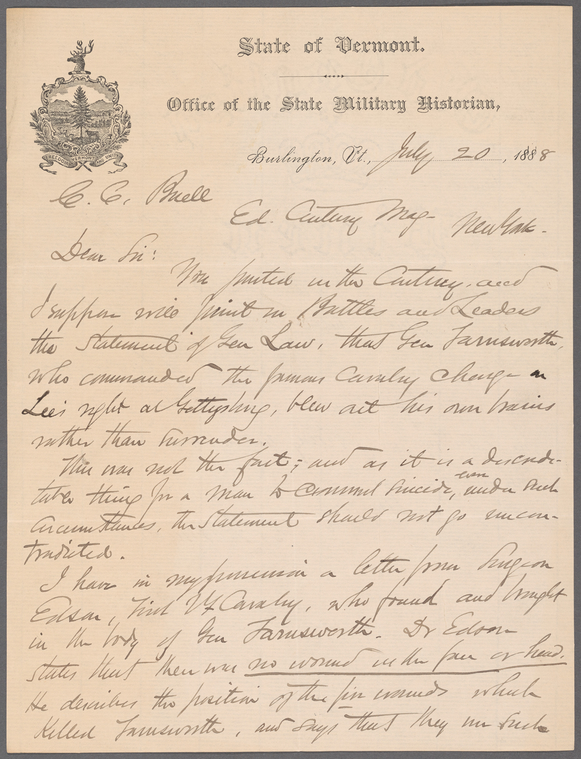 State of Vermont.
Office of the State Military Historian,
Burlington, Vt., July 20, 1888
C. C. Buell
Ed. Century Mag-
New York.
Dear Sir:
You printed in the Century, and
I suppose will print in Battles and Leaders
the Statement of Gen Law, that Gen Farnsworth,
who commanded the famous Cavalry Charge on
Lee's right at Gettysburg, blew out his own brains
rather than surrender.
This was not the fact; and as it is a discredi-
table thing for a man to commit suicide, even under such
circumstances, the Statement should not go uncon-
tradicted.
I have in my possession a letter from Surgeon
Edson, First Vt Cavalry, who found and brought
in the body of Gen Farnsworth. Dr Edson
states that there was no wound in the face or head.
He describes the position of the five wounds which
killed Farnsworth, and says that they were such